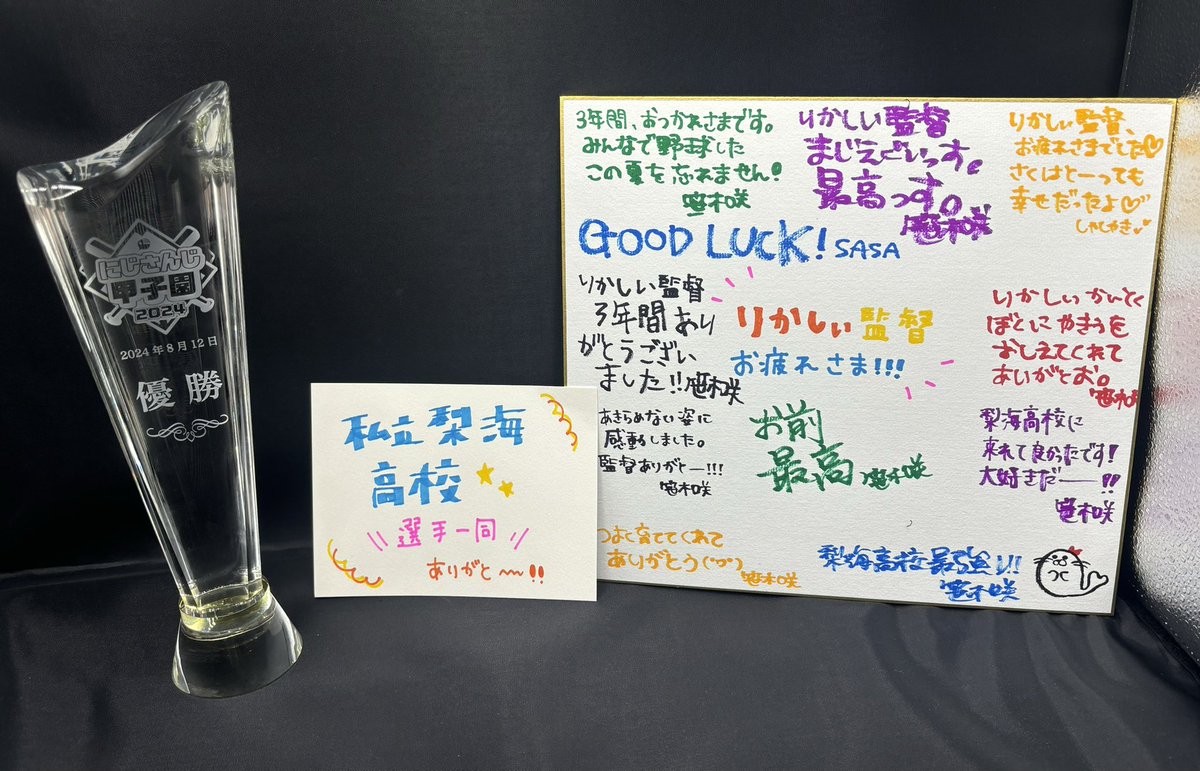 にじさんじ
甲子園
2024
2024年8月12日
優勝
私立梨海
高校
選手一同
ありがと〜!!
3年間、おつかれさまです。
みんなで野球した
この夏を忘れません!
笹木咲
りかしぃ監督
まじえぐいっす。
最高っす。
笹木咲
りかしぃ監督、
お疲れさまでした♡
さくはとーっても
幸せだったよ♡
GOOD LUCK! SASA
りかしぃ監督
3年間あり
がとうござい
ました!!笹木咲
りかしぃ監督
お疲れさま!!!
りかしぃかんとく
ぼくに やきうを
おしえてくれて
ありがとお。
笹木咲
あきらめない姿に
感動しました。
監督ありがとー!!!
笹木咲
お前
最高 笹木咲
梨海高校に
来れて良かったです!
大好きだー!!
笹木咲
つよく育ててくれて
ありがとう
笹木咲
梨海高校最強!!
笹木咲